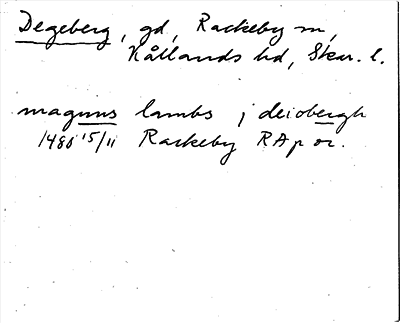 Degeberg, gd, Rackeby sn,
Kållands hd, Skar. l.
magnus lambs j deiobergh
1480 15/11 Rackeby RAp or.